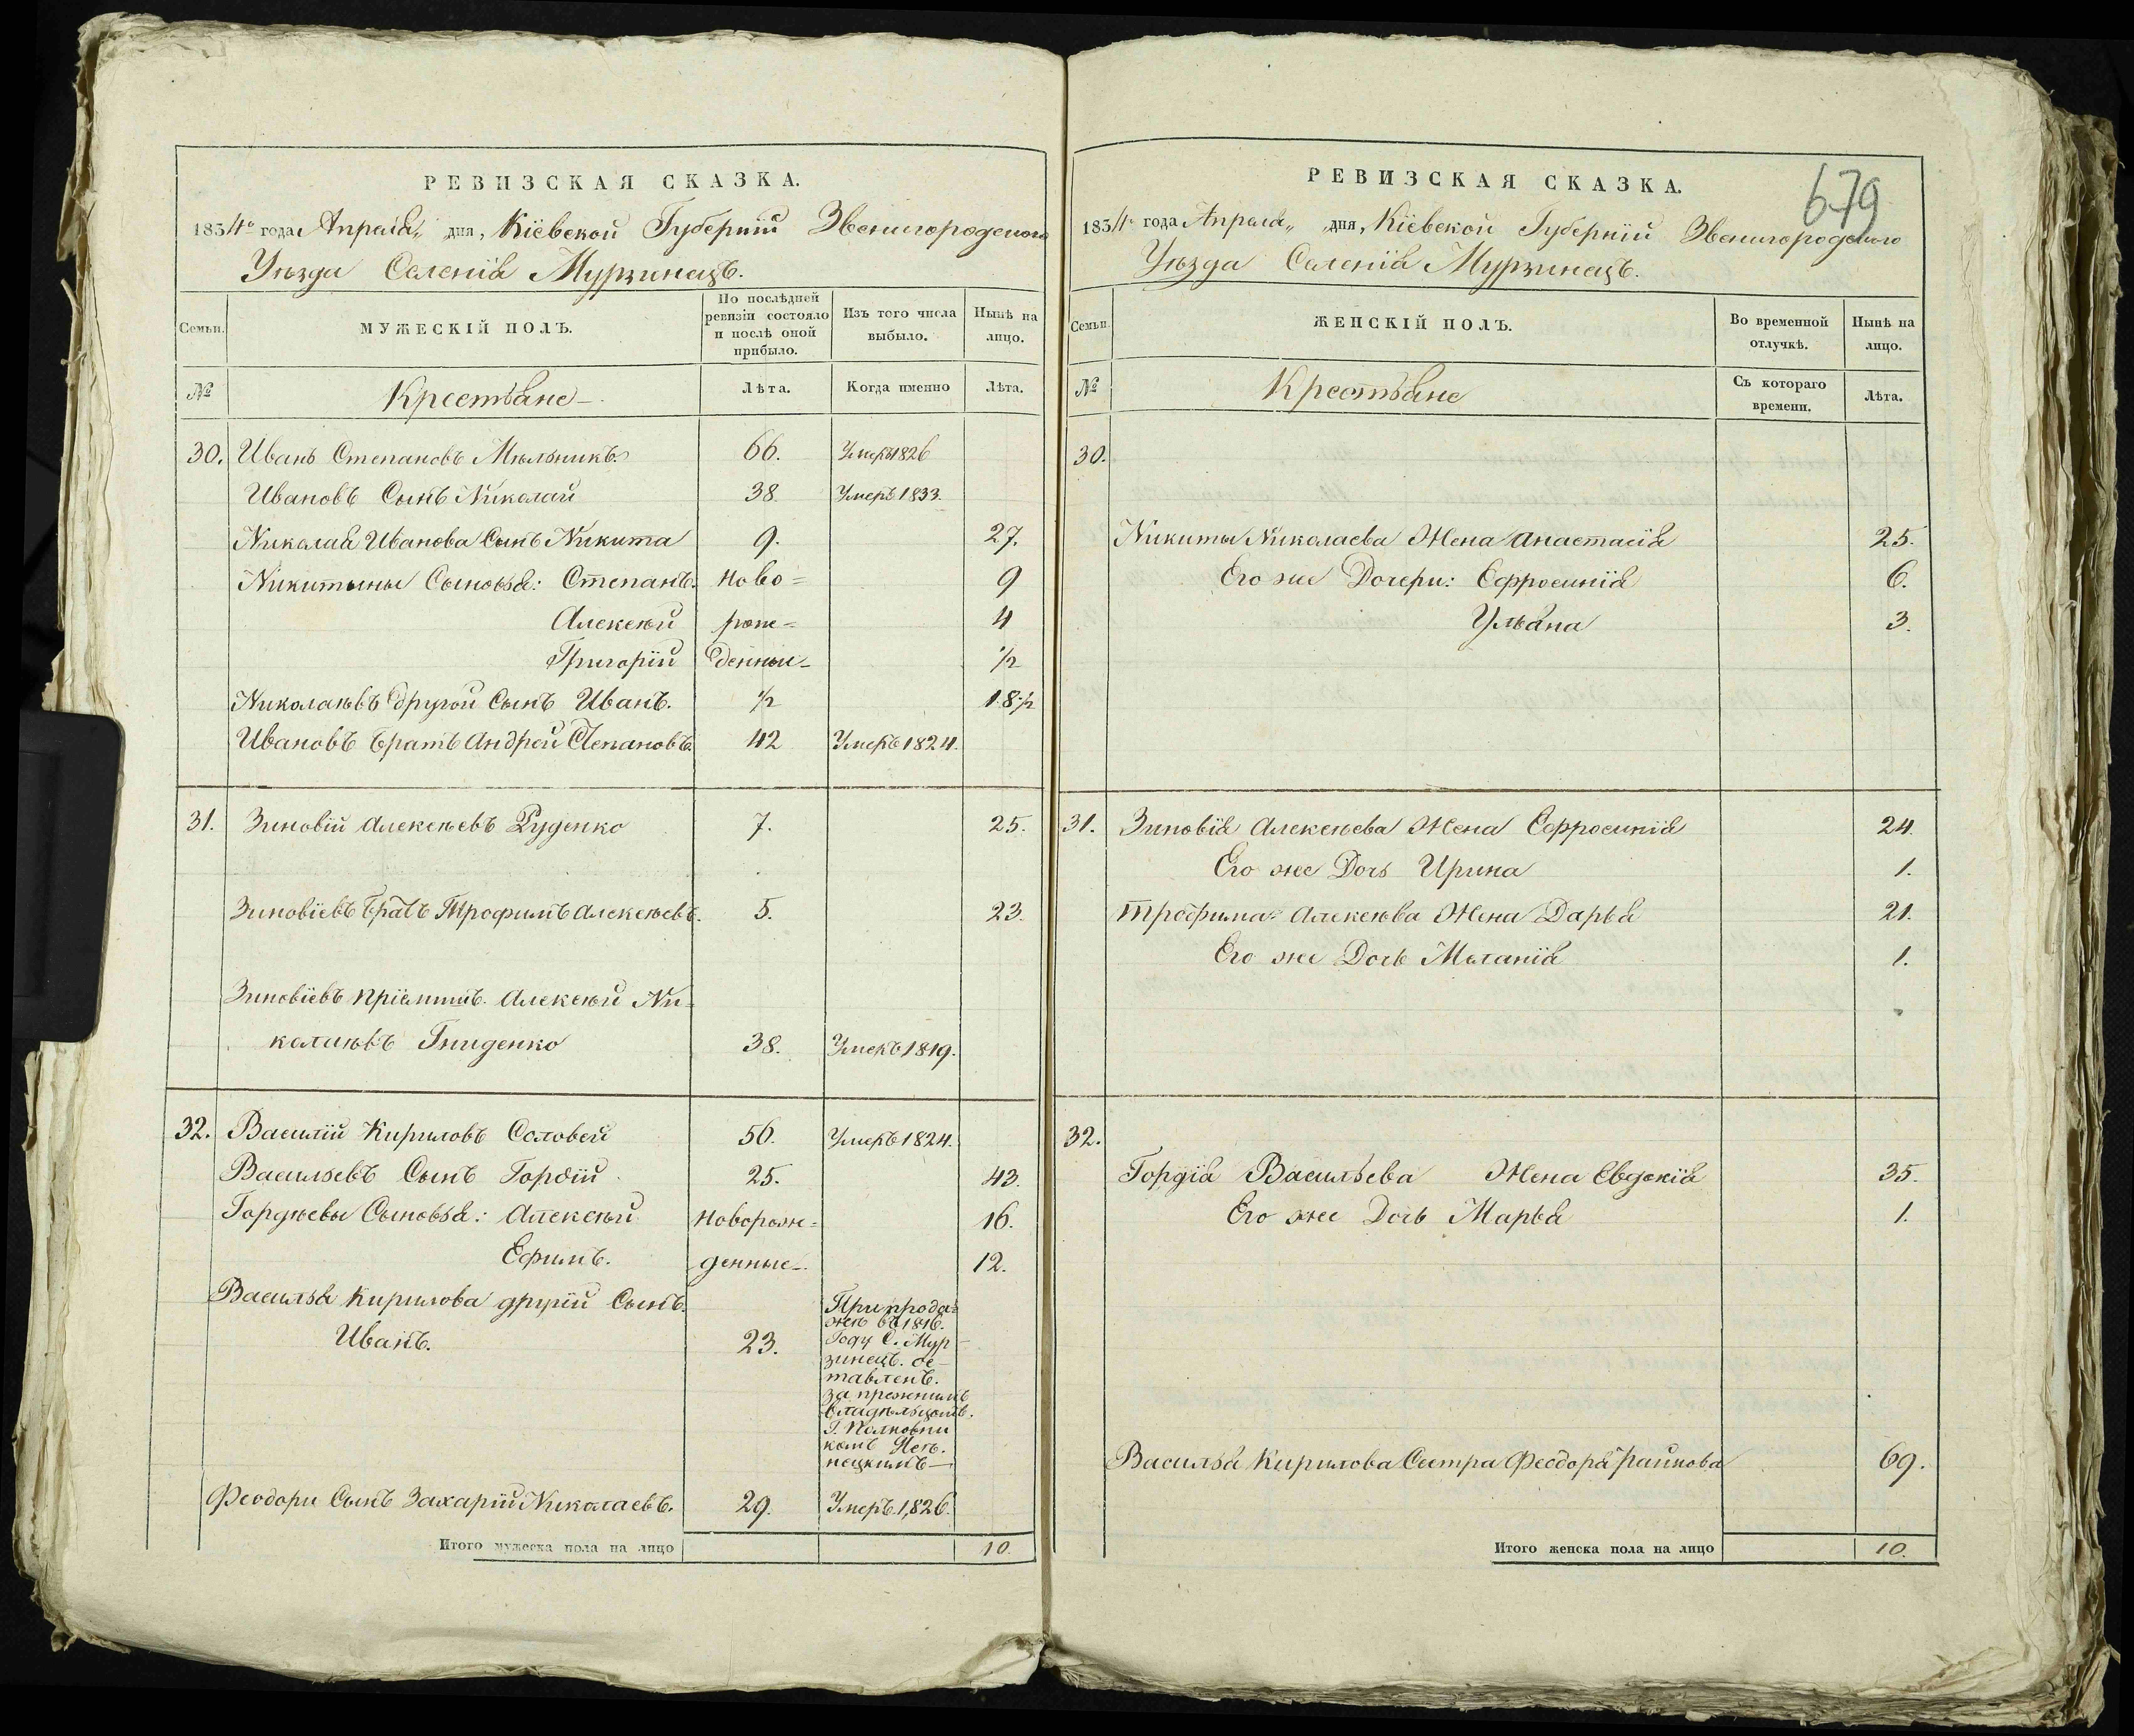 РЕВИЗСКАЯ СКАЗКА.
1834го года Апреля „ дня, Кіевской Губерніи Звенигородскаго
Уѣзда Селенія Мурзинецъ.
Семьи.
МУЖЕСКІЙ ПОЛЪ.
По послѣдней ревизіи состояло и послѣ оной прибыло.
Изъ того числа выбыло.
Нынѣ на лицо.
№ Крестьяне Лѣта. Когда именно Лѣта.
30. Иванъ Степановъ Мѣльникъ. 66. Умеръ 1826
Ивановъ Сынъ Николай 38. Умеръ 1833.
Николая Иванова Сынъ Никита 9. 27.
Никитины Сыновья: Степанъ. Ново= 9
Алексѣй рож= 4
Григорій денныи= ½
Николаѣвъ другой Сынъ Иванъ. ½ 18½
Ивановъ Братъ Андрей Степановъ. 42 Умеръ 1824.
31. Зиновій Алексѣевъ Руденко 7. 25.
Зиновіевъ Братъ Трофимъ Алексѣевъ. 5. 23.
Зиновіевъ пріемышъ. Алексѣй Ни=
колаѣвъ Гниденко 38. Умеръ 1819.
32. Василій Кириловъ Соловей 56. Умеръ 1824.
Васильевъ Сынъ Гордій 25. 43.
Гордѣевы Сыновья: Алексѣй Новорож= 16.
Ефимъ. денные=. 12.
Василья Кирилова другій Сынъ.
Иванъ. 23.
При прода=
жѣ въ 1816.
Году С. Мур=
зинецъ. ос=
тавленъ.
за прежнимъ
владѣльцомъ.
Г. Полковни
комъ
нецкимъ—
Феодори Сынъ Захарій Николаевъ. 29. Умеръ. 1826.
Итого мужеска пола на лицо 10.
РЕВИЗСКАЯ СКАЗКА.
679
1834го года Апреля „ дня, Кіевской Губерніи Звенигородскаго
Уѣзда Селенія Мурзинецъ.
Семьи.
ЖЕНСКІЙ ПОЛЪ.
Во временной отлучкѣ.
Нынѣ на лицо.
№ Крестьяне Съ котораго времени. Лѣта.
30.
Никиты Николаева Жена Анастасія 25.
Его же Дочери: Ефросинія 6.
Ульяна 3.
31. Зиновія Алексѣева Жена Ефросинія 24.
Его же Дочь Ирина 1.
Трофима Алексѣва Жена Дарья 21.
Его же Дочь Меланія 1.
32.
Гордія Васильева Жена Евдокія 35.
Его же Дочь Марья 1.
Василья Кирилова Сестра Феодора 69.
Итого женска пола на лицо 10.